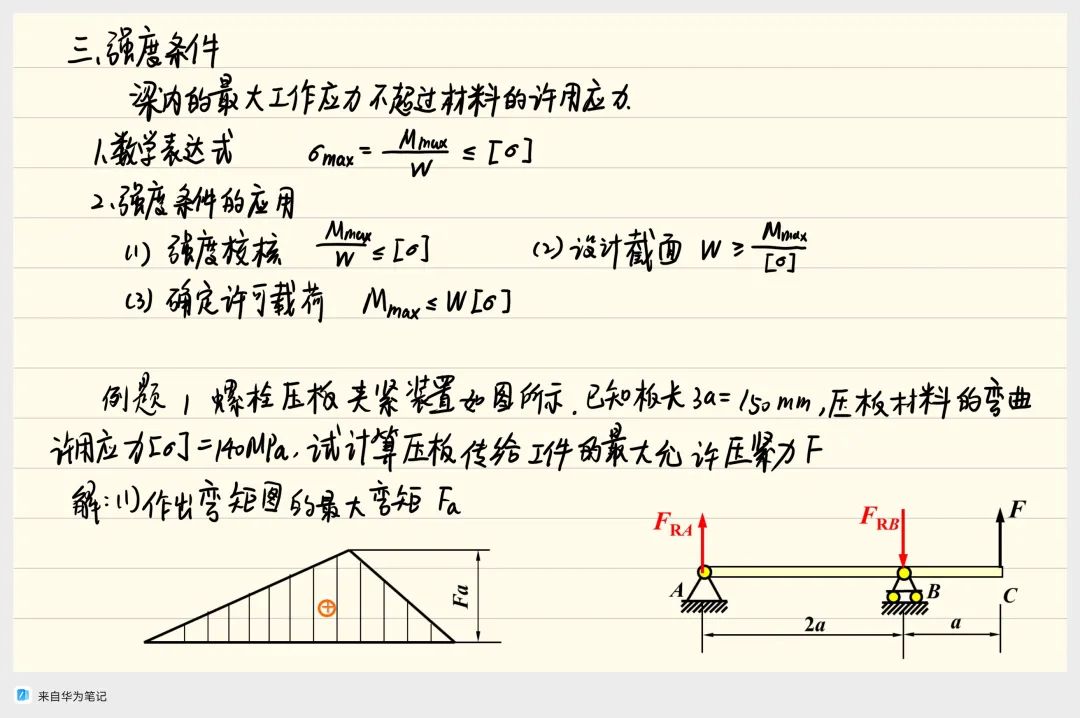 三、强度条件
梁内的最大工作应力不超过材料的许用应力.
1.数学表达式 σmax = Mmax/W ≤ [σ]
2.强度条件的应用
(1) 强度校核 Mmax/W ≤ [σ] (2) 设计截面 W ≥ Mmax/[σ]
(3) 确定许可载荷 Mmax ≤ W[σ]
例题 1 螺栓压板夹紧装置如图所示.已知板长3a=150mm,压板材料的弯曲
许用应力[σ]=140MPa.试计算压板传给工件的最大允许压紧力F
解:(1)作出弯矩图的最大弯矩 Fa
Fa
FRA FRB F
A B C
2a a
来自华为笔记